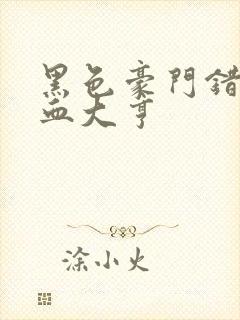 黑色豪門錯
血大亨
涂小火